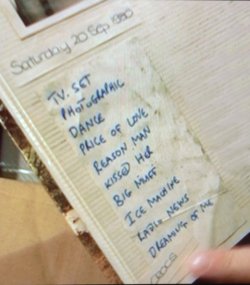 Saturday 20 Sep 1980
T.V. SET
PHOTOGRAPHIC
DANCE
PRICE OF LOVE
REASON MAN
KISSED HER
BIG MUFF
ICE MACHINE
RADIO NEWS
DREAMING OF ME
CROCS